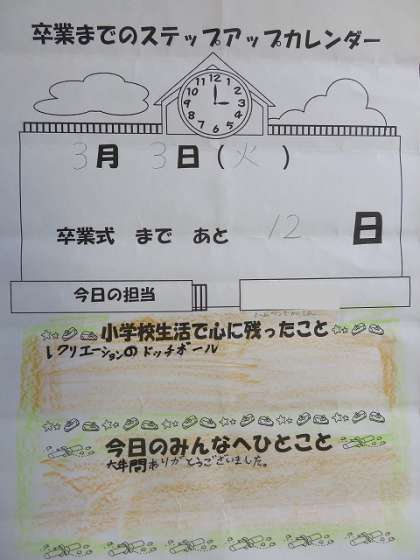 卒業までのステップアップカレンダー
12
11 1
10 2
9 3
8 4
7 5
6
3月 3日(火 )
卒業式 まで あと 12 日
今日の担当
小学校生活で心に残ったこと
レクリエーションの ドッチボール
今日のみんなへひとこと
六年間ありがとうございました。